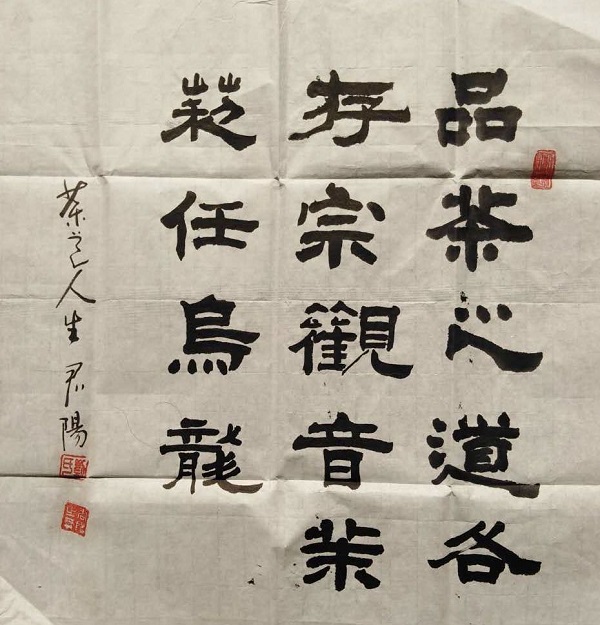 品茶心道各
存宗觀音茉
莉任烏龍
茶之人生 君陽